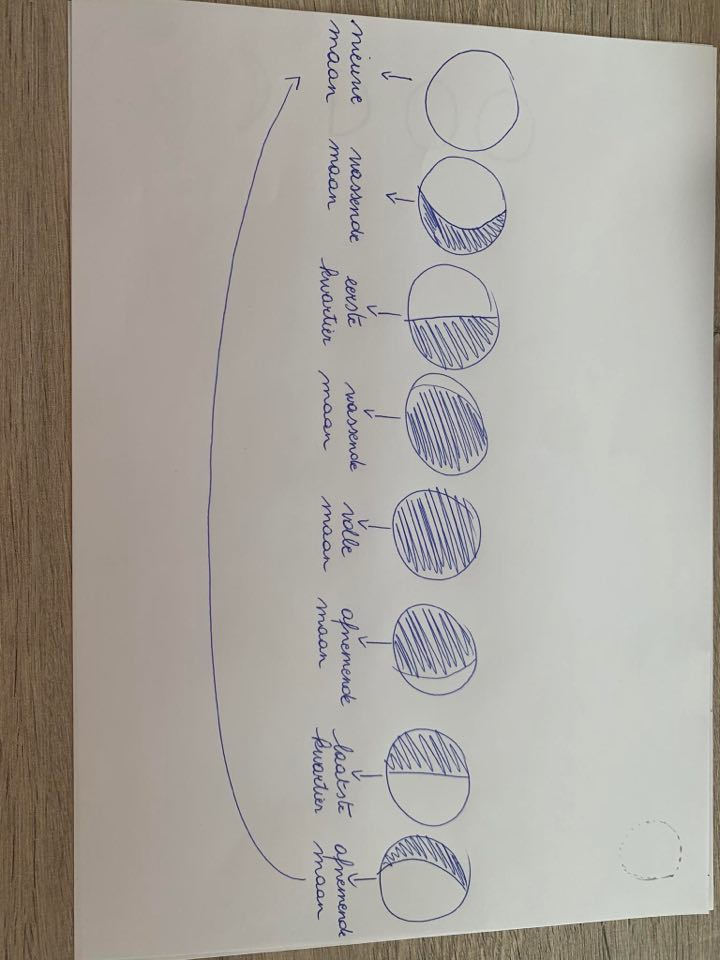 nieuwe
maan
wassende
maan
eerste
kwartier
wassende
maan
volle
maan
afnemende
maan
laatste
kwartier
afnemende
maan